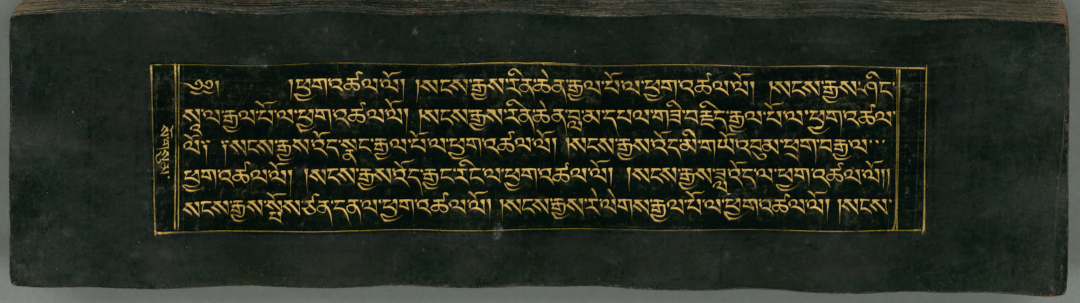 ༄༅། །ཕྱག་འཚལ་ལོ། །སངས་རྒྱས་རིན་ཆེན་རྒྱལ་པོ་ལ་ཕྱག་འཚལ་ལོ། །སངས་རྒྱས་ཤིང་
ས་ལ་རྒྱལ་པོ་ལ་ཕྱག་འཚལ་ལོ། །སངས་རྒྱས་རིན་ཆེན་བླ་མ་དཔལ་གཟི་བརྗིད་རྒྱལ་པོ་ལ་ཕྱག་འཚལ་
ལོ། །སངས་རྒྱས་འོད་སྣང་རྒྱལ་པོ་ལ་ཕྱག་འཚལ་ལོ། །སངས་རྒྱས་འོད་མི་གཡོ་འབུམ་ཕྲག་བརྒྱལ་
ཕྱག་འཚལ་ལོ། །སངས་རྒྱས་འོད་རྒྱང་རིང་ལ་ཕྱག་འཚལ་ལོ། །སངས་རྒྱས་ཟླ་འོད་ལ་ཕྱག་འཚལ་ལོ།།
སངས་རྒྱས་སྤོས་ཙན་དན་ལ་ཕྱག་འཚལ་ལོ། །སངས་རྒྱས་རི་ལེགས་རྒྱལ་པོ་ལ་ཕྱག་འཚལ་ལོ། །སངས་